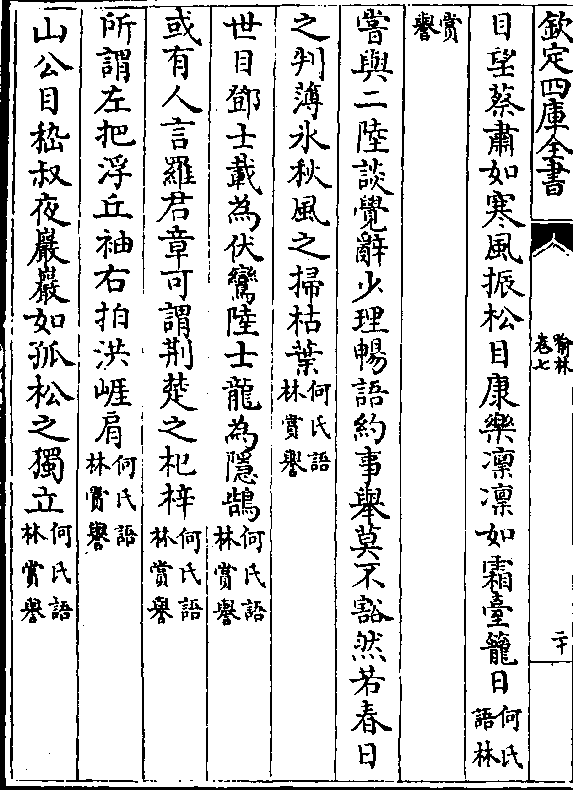 欽定四庫全書
喻林
卷七
二十
目望蔡肅如寒風振松目康樂凛凛如霜臺籠日何氏
語林
賞
譽
嘗與二陸談覺辭少理暢語約事舉莫不豁然若春日
之判薄氷秋風之掃枯葉何氏語
林賞譽
世目鄧士載為伏鸞陸士龍為隱鵠何氏語
林賞譽
或有人言羅君章可謂荆楚之杞梓何氏語
林賞譽
所謂左把浮丘袖右拍洪崕肩何氏語
林賞譽
山公目嵇叔夜巖巖如孤松之獨立何氏語
林賞譽